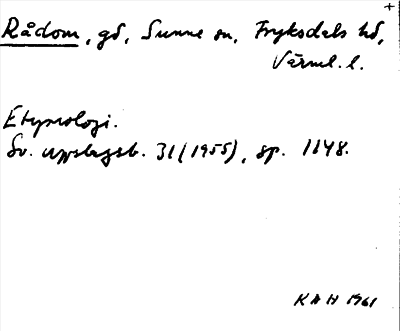 +
Rådom, gd, Sunne sn, Fryksdals hd,
Värml. l.
Etymologi.
Sv. uppslagsb. 31 (1955), sp. 1148.
KAH 1961